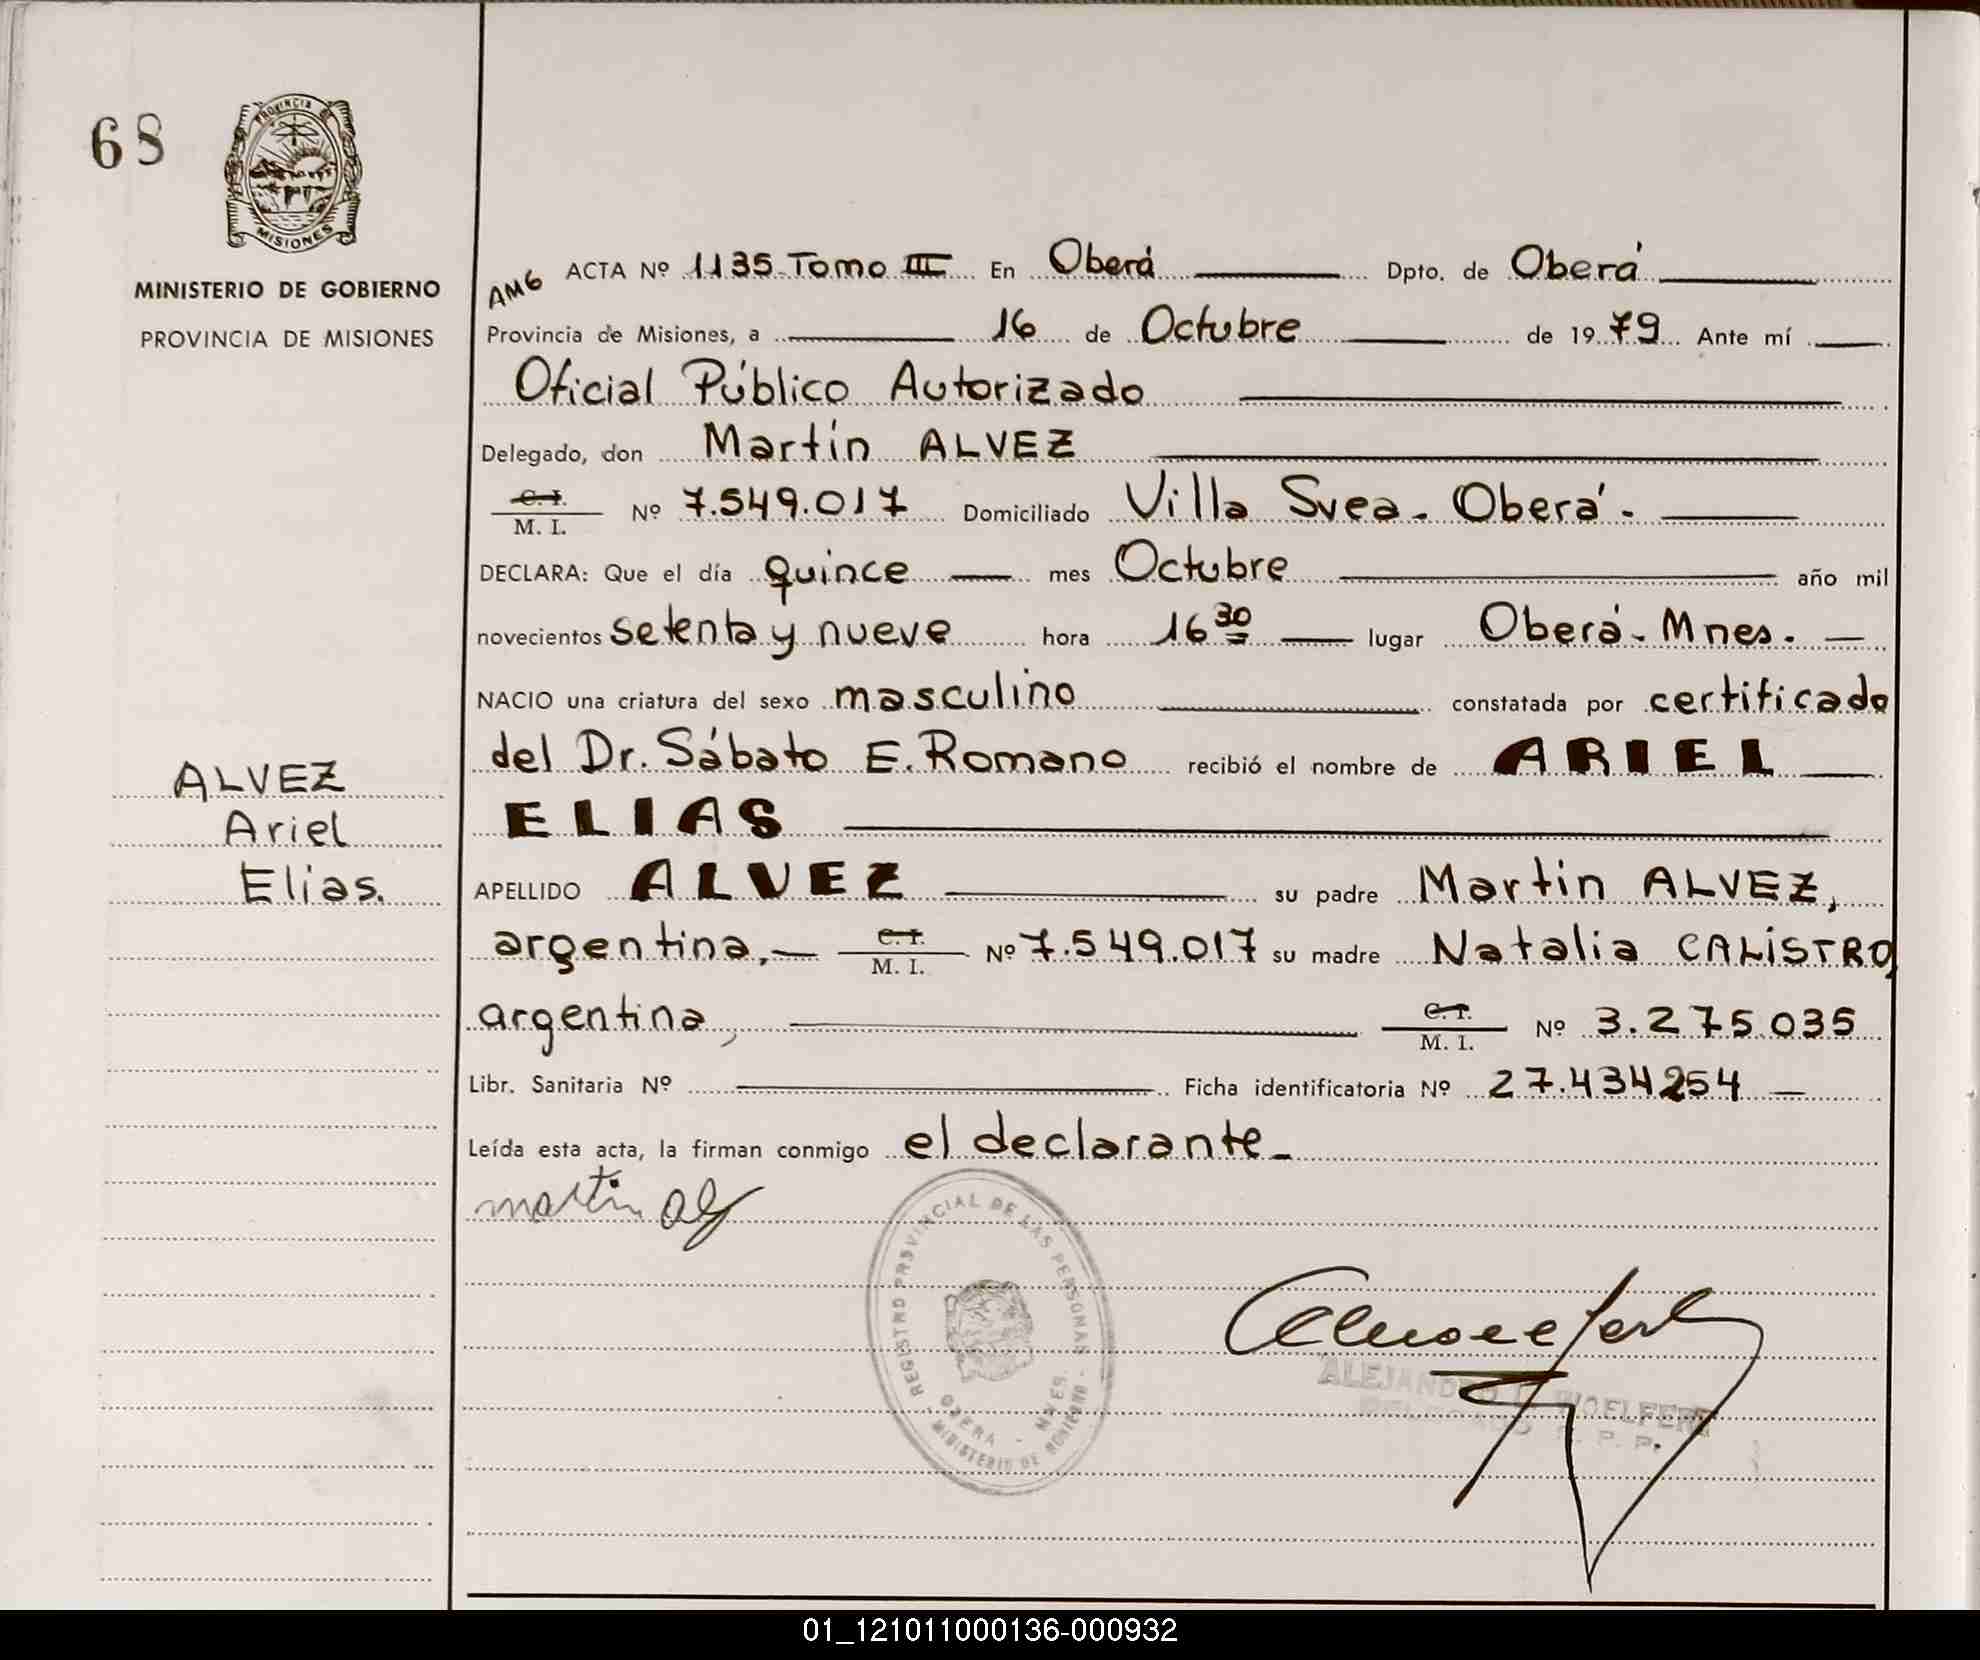 68
PROVINCIA DE
MISIONES
MINISTERIO DE GOBIERNO
PROVINCIA DE MISIONES
ALVEZ
Ariel
Elias.
AMG ACTA Nº 1135 Tomo III En Oberá Dpto. de Oberá
Provincia de Misiones, a 16 de Octubre de 1979 Ante mí
Oficial Público Autorizado
Delegado, don Martín ALVEZ
C. I.
M. I. Nº 7.549.017 Domiciliado Villa Svea - Oberá -
DECLARA: Que el día quince mes Octubre año mil
novecientos setenta y nueve hora 16 30 lugar Oberá - Mnes. -
NACIO una criatura del sexo masculino constatada por certificado
del Dr. Sábato E. Romano recibió el nombre de ARIEL
ELIAS
APELLIDO ALVEZ su padre Martin ALVEZ,
argentina, - C. I. M. I. Nº 7.549.017 su madre Natalia CALISTRO,
argentina, C. I. M. I. Nº 3.275.035
Libr. Sanitaria Nº Ficha identificatoria Nº 27.434254 -
Leída esta acta, la firman conmigo el declarante -
martin
REGISTRO PROVINCIAL DE LAS PERSONAS
OBERA - MNES.
- MINISTERIO DE GOBIERNO -
ALEJANDRO WOELFERT
DELEGADO R. P. P.
01_121011000136-000932